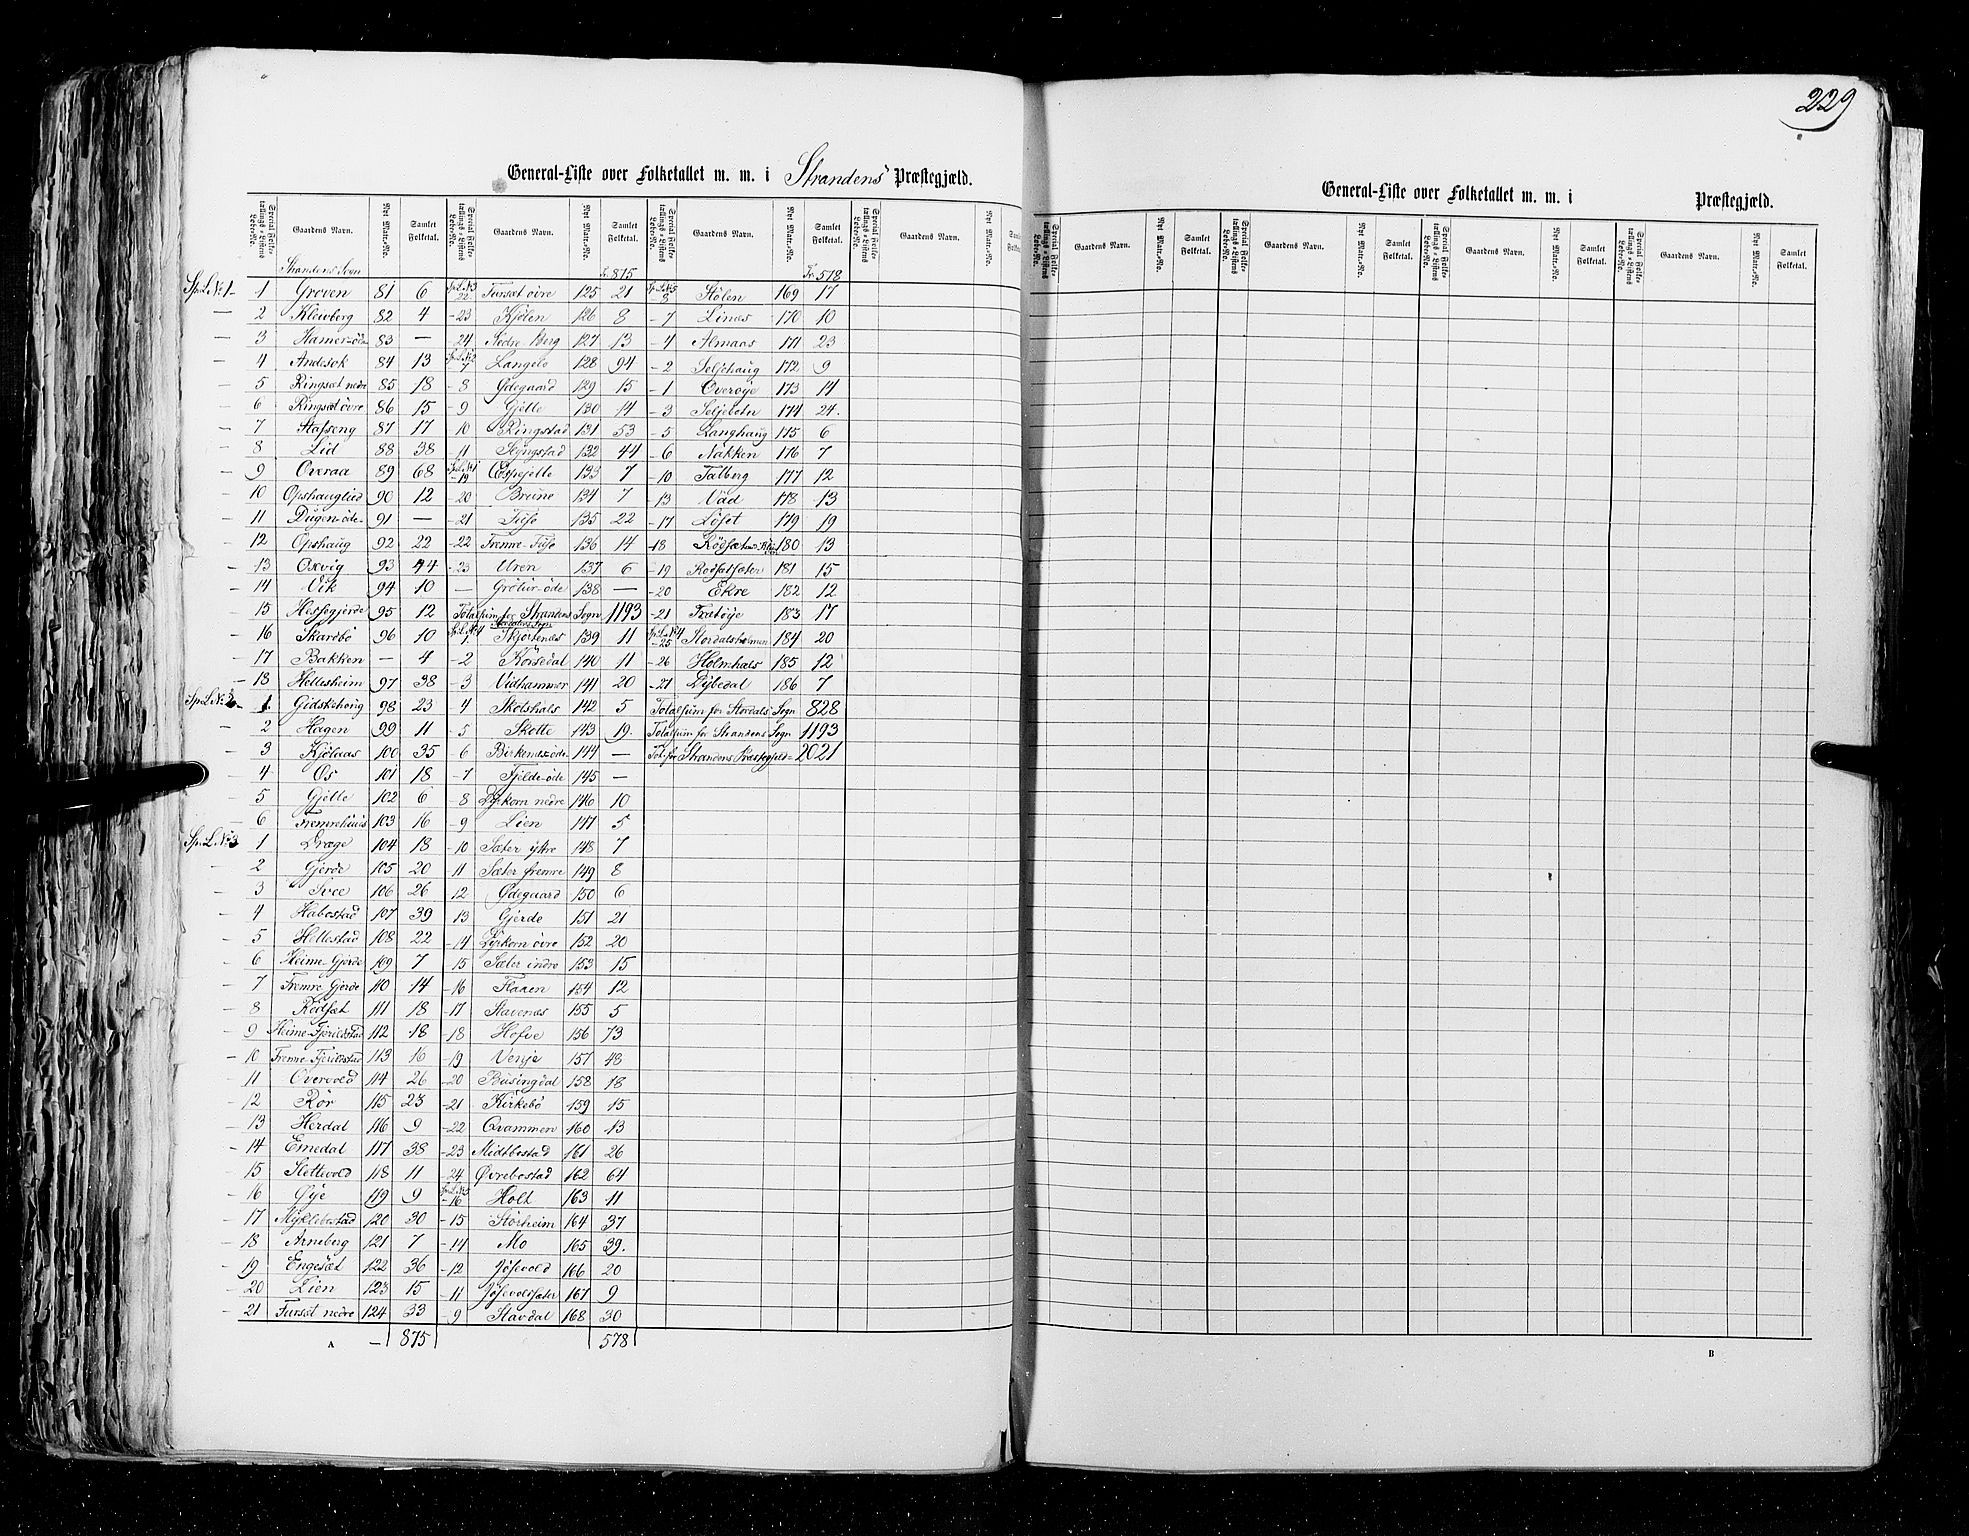 229
General-Liste over Folketallet m. m. i Strandens Præstegjæld.
Special Folketællings-Listens Løbe-No. Gaardens Navn. Nyt Matr.-No. Samlet Folketal.
Strandens Sogn
Sp. L. No 1 - 1 Groven 81 6
- 2 Kleivberg 82 4
- 3 Hamer-öde 83 -
- 4 Andesok 84 13
- 5 Ringsæt nedre 85 18
- 6 Ringsæt övre 86 15
- 7 Stafseng 87 17
- 8 Lid 88 38
- 9 Overaa 89 68
- 10 Opshauglied 90 12
- 11 Dugen-öde 91 -
- 12 Opshaug 92 22
- 13 Oxvig 93 44
- 14 Vik 94 10
- 15 Hessegjerde 95 12
- 16 Skarbö 96 10
- 17 Bakken - 4
- 18 Hellesheim 97 38
Sp. L. No 2 - 1 Gidskehoug 98 23
- 2 Hagen 99 11
- 3 Kjölaas 100 35
- 4 Os 101 18
- 5 Gjelle 102 6
- 6 Fremrehuus 103 16
Sp. L. No 3 1 Dræge 104 18
- 2 Gjerde 105 20
- 3 Svee 106 26
- 4 Habostad 107 39
- 5 Hellestad 108 22
- 6 Heime-Gjerde 109 7
- 7 Fremre Gjerde 110 14
- 8 Rödsæt 111 18
- 9 Heime-Fjerildstad 112 18
- 10 Fremre-Fjerildstad 113 16
- 11 Overvold 114 26
- 12 Rör 115 23
- 13 Herdal 116 9
- 14 Emedal 117 38
- 15 Slettevold 118 11
- 16 Øye 119 9
- 17 Myklebostad 120 30
- 18 Arneberg 121 7
- 19 Engesæt 122 36
- 20 Lien 123 15
- 21 Furset nedre 124 33
- 875
A
Special Folketællings-Listens Løbe-No. Gaardens Navn. Nyt Matr.-No. Samlet Folketal.
Tr. 875
Sp. L. No 3 22 Fursæt övre 125 21
- 23 Kjölen 126 8
- 24 Nedre-Berg 127 13
Sp. L. No 2 7 Langelo 128 94
- 8 Ødegaard 129 15
- 9 Gjelle 130 14
10 Ringstad 131 53
- 11 Slyngstad 132 44
Sp. L. No 1 - 19 Espegjelle 133 7
- 20 Brune 134 7
- 21 Tuse 135 22
- 22 Fremre-Tuse 136 14
- 23 Uren 137 6
- Grötur-öde 138 -
Totalsum for Strandens Sogn 1193
Stordalens Sogn
Sp. L. No 4 1 Skjortenæs 139 11
- 2 Korsedal 140 11
- 3 Vidhammer 141 20
- 4 Skotshals 142 5
- 5 Skotte 143 19
- 6 Birkenæs-öde 144 -
- 7 Fjelde-öde 145 -
- 8 Dyrkorn nedre 146 10
- 9 Lien 147 5
- 10 Sæter ytre 148 7
11 Sæter fremre 149 8
12 Ødegaard 150 6
13 Gjerde 151 21
- 14 Dyrkorn övre 152 20
- 15 Sæter indre 153 15
- 16 Flaaen 154 12
- 17 Stavenæs 155 5
- 18 Hofve 156 73
- 19 Venje 157 48
- 20 Busingdal 158 18
- 21 Kirkebö 159 15
- 22 Qvammen 160 13
- 23 Midtbostad 161 26
- 24 Øvrebostad 162 64
Sp. L. No 5 - 16 Holt 163 11
- 15 Storheim 164 37
- 14 Mo 165 39
- 12 Jösevold 166 20
- 11 Jösevoldsæter 167 9
- 9 Stavdal 168 30
578
Special Folketællings-Listens Løbe-No. Gaardens Navn. Nyt Matr.-No. Samlet Folketal.
Tr. 578
Sp. L. No 5 8 Stölen 169 17
- 7 Linæs 170 10
- 4 Almaas 171 23
- 2 Seljehaug 172 9
- 1 Overöye 173 14
- 3 Seljebotn 174 24
- 5 Langhaug 175 6
- 6 Nakken 176 7
- 10 Talberg 177 12
- 13 Vad 178 13
- 17 Löset 179 19
- 18 Rödsæt 180 13
- 19 Rodsætsæter 181 15
- 20 Ekre 182 12
- 21 Fratöye 183 17
Sp. L. No 4 - 25 Stordalsholmen 184 20
- 26 Holmhals 185 12
- 27 Dybedal 186 7
Totalsum for Stordals Sogn 828
Totalsum for Strandens Sogn 1193
Tot. for Strandens Præstegjeld = 2021
Special Folketællings-Listens Løbe-No. Gaardens Navn. Nyt Matr.-No. Samlet Folketal.
General-Liste over Folketallet m. m. i Præstegjæld.
Special Folketællings-Listens Løbe-No. Gaardens Navn. Nyt Matr.-No. Samlet Folketal.
Special Folketællings-Listens Løbe-No. Gaardens Navn. Nyt Matr.-No. Samlet Folketal.
Special Folketællings-Listens Løbe-No. Gaardens Navn. Nyt Matr.-No. Samlet Folketal.
Special Folketællings-Listens Løbe-No. Gaardens Navn. Nyt Matr.-No. Samlet Folketal.
B